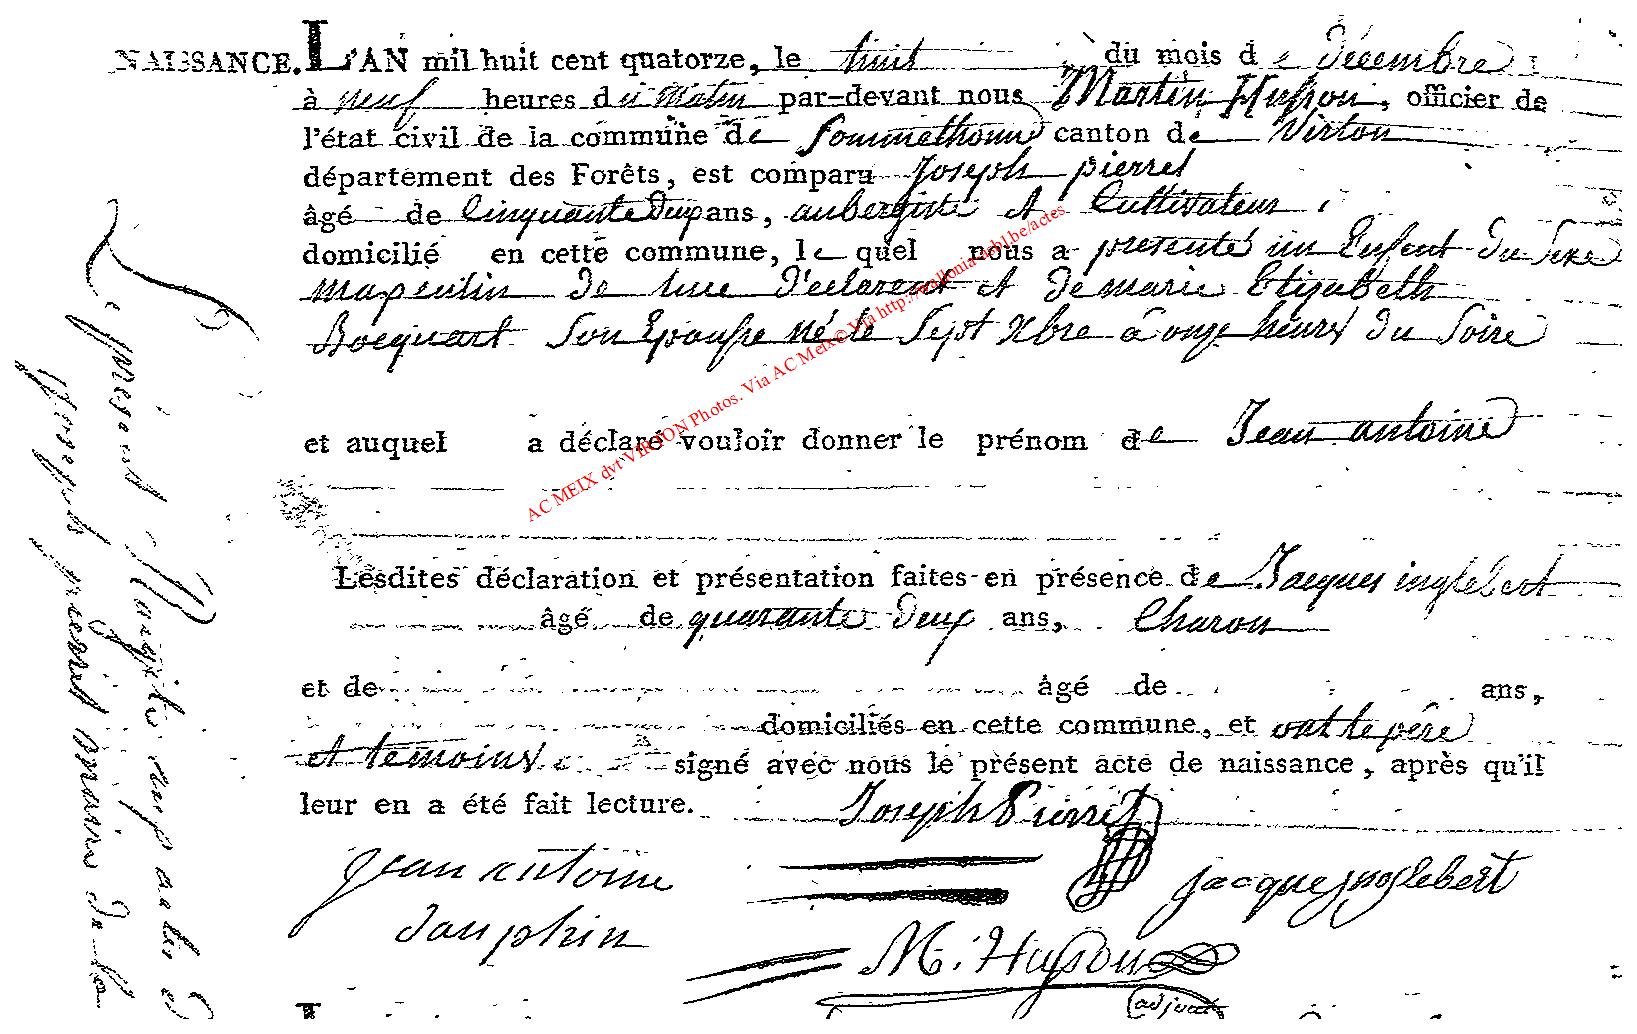 NAISSANCE. L'AN mil huit cent quatorze, le huit du mois de décembre
à neuf heures du matin par-devant nous Martin Husson, officier de
l'état civil de la commune de Sommethonne canton de Virton
département des Forêts, est comparu Joseph pierret
âgé de Cinquante deux ans, aubergiste et Cultivateur
domicilié en cette commune, le quel nous a presenté un Enfent du Sexe
masculin de luie déclarent et de marie Elizabeth
Bocquart Son Epousse né le Sept Xbre à onze heures du Soire
et auquel a déclaré vouloir donner le prénom de Jean antoine
Lesdites déclaration et présentation faites en présence de Jacques inglebert
âgé de quarante deux ans, Charon
et de âgé de ans,
domiciliés en cette commune, et ont le père
et temoins signé avec nous le présent acte de naissance, après qu'il
leur en a été fait lecture. Joseph Pierret
jean antoine jacque jnglebert
dauphin
M. Husson
adjoint
Le présent Registre
AC MEIX dvt VIRTON Photos. Via AC Meix © Via http://wallonia-gb1.be/actes